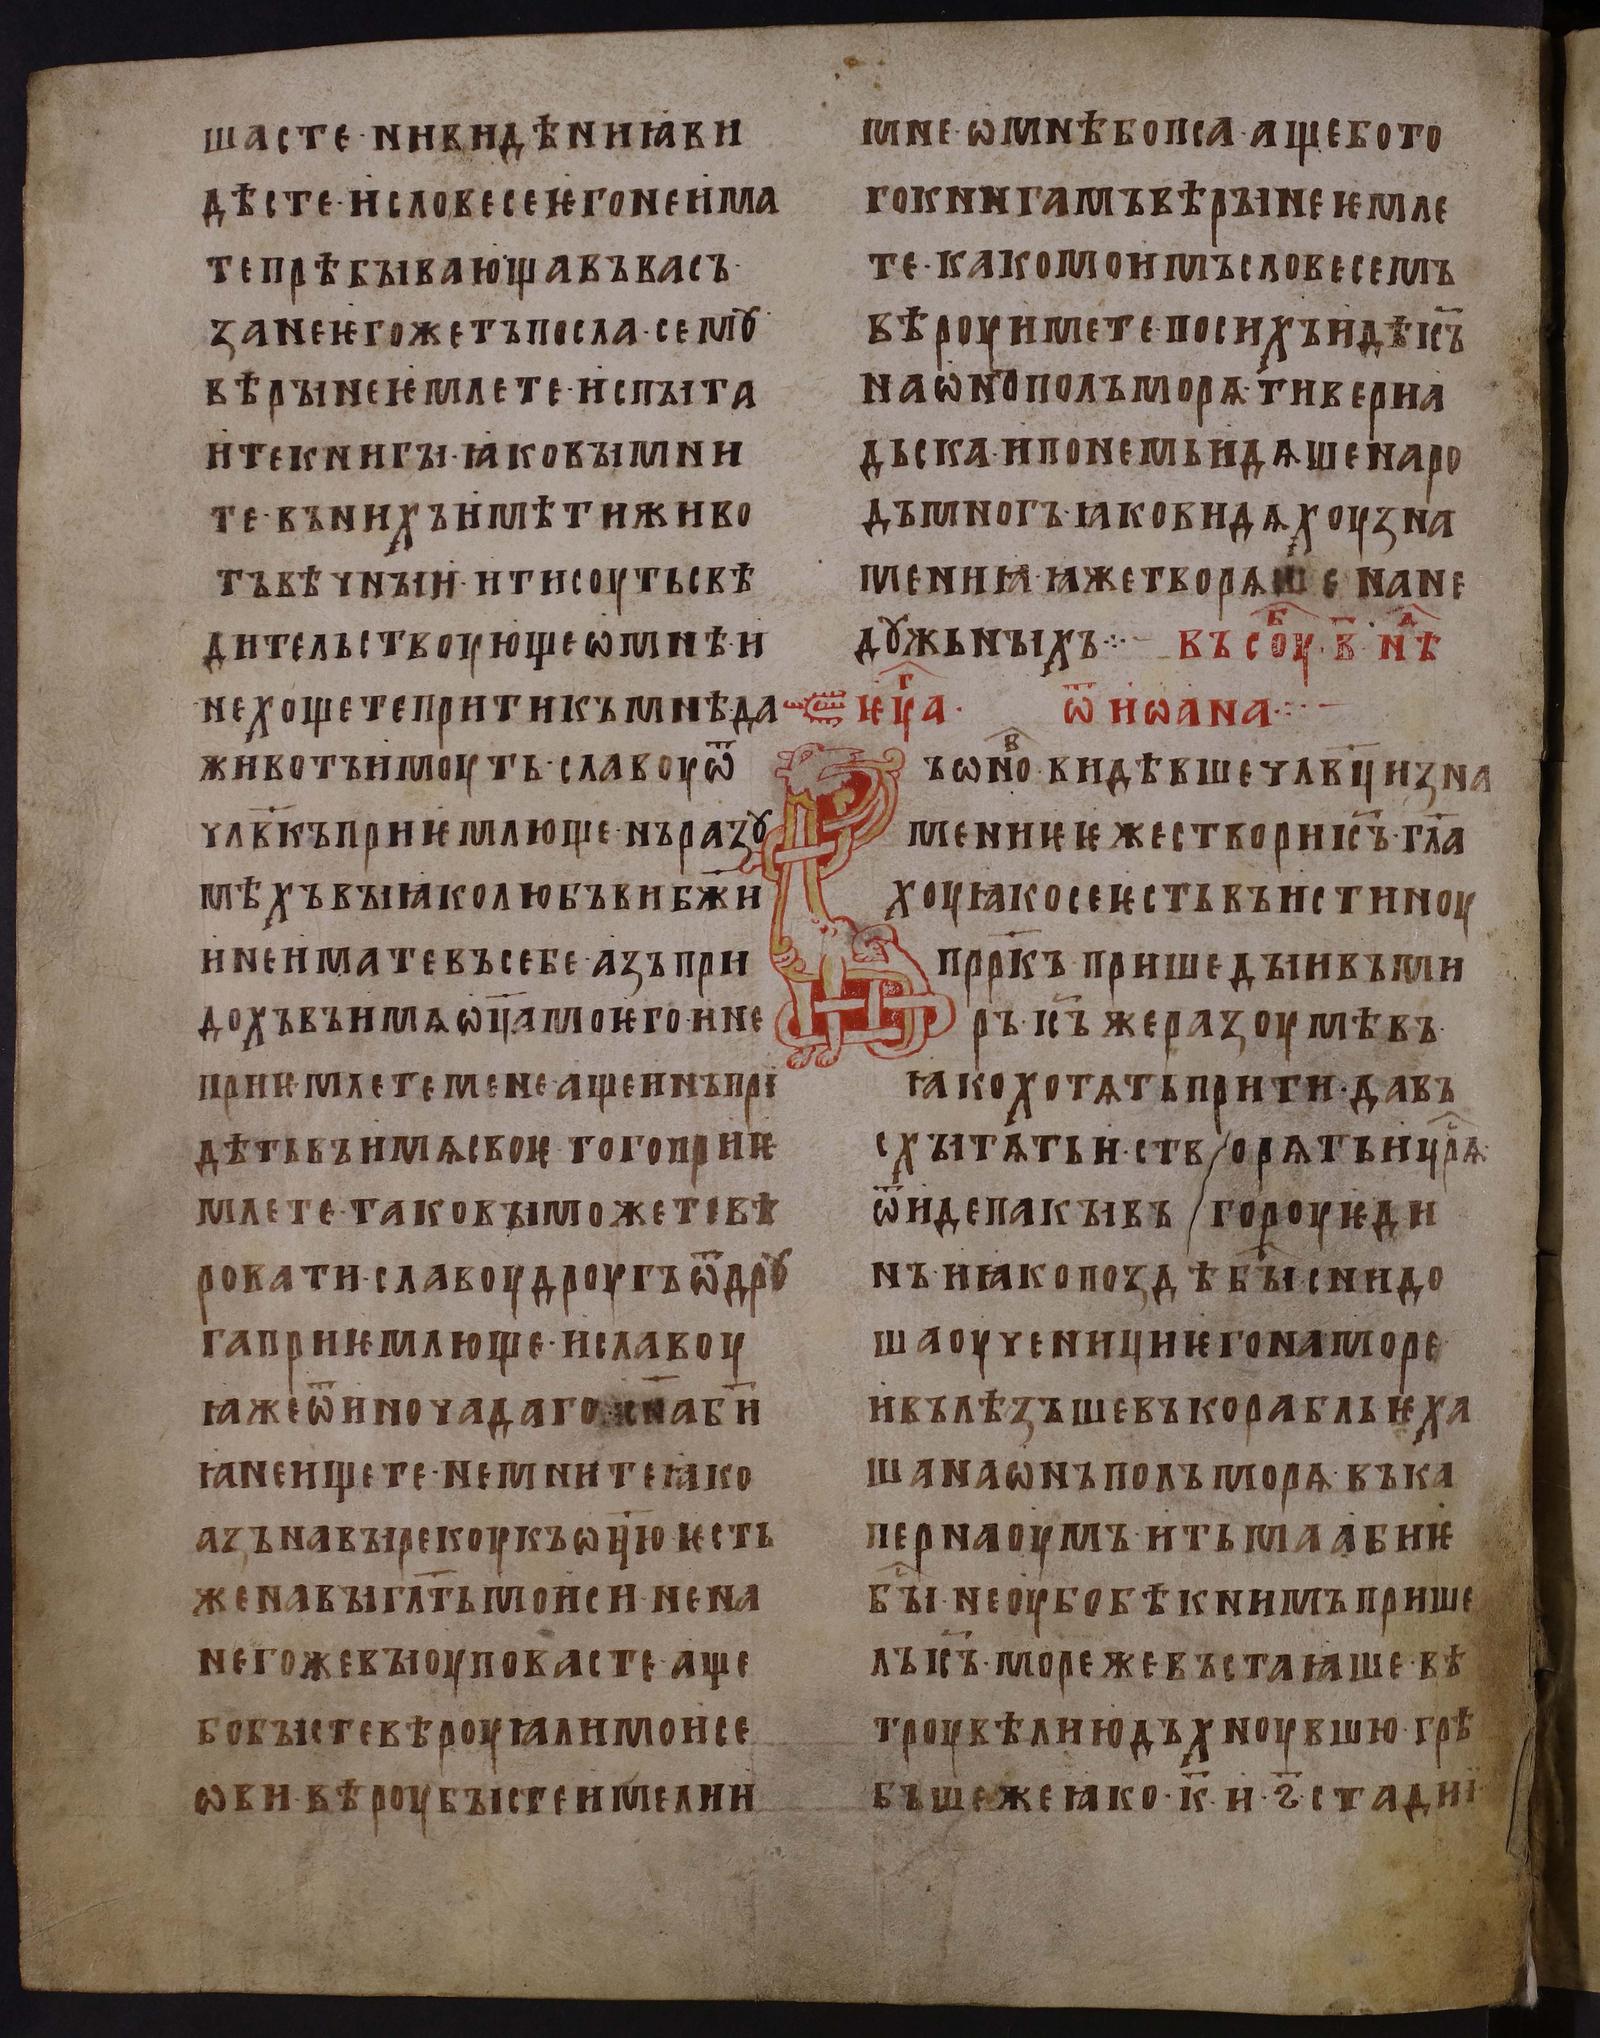 шасте·нивидѣниꙗви
дѣсте·ислова҅сеѥгонеима
тепрѣбывающавъвасъ·
занеѥгожетъпосла·семꙋ
вѣрынеѥмлете·испыта
итекнигы·ꙗковымни
те·въниχъимѣтиживо
тъвѣчныи·итисоуть свѣ
дительствоующеѡмнѣ·и
неχощетепритикъмнѣ·да
животъимоуть·славоуѿ
чл҃вкъприѥмлюще·нъразꙋ
мѣχъвыꙗколюбъвиб҃жи
инеиматевъсебе·азъпри
доχъвъимѧѡц҃амоѥго·ине
приѥмлетемене·ащеинъпрі
дѣтьвъимѧсвоѥ·тогоприѥ
млете·таковыможетевѣ
ровати·славоудроугъѿдрꙋ
гаприѥмлюще·иславоу
ꙗжеѿиночадаго
ꙗнеищете·немнитеꙗко
азънавырекоукъѡц҃ю·ѥсть
женавыгл҃тьмоиси·нена
негожевыоуповасте·аще
бобыстевѣроуꙗлимоисе
ѡви·вѣроубыстеимелии
мне·ѡмнѣбопса·ащебото
гокнигамъвѣрынеѥмле
те·какомоимъсловесемъ
вѣроуимете·посиχъидѣіс҃ъ
наѡнополъморѧ·тивериа
дьска·ипонемьидѧшенаро
дъмногъ·ꙗковидѧχоузна
мениꙗ·ꙗжетворѧше·нане
дꙋжьныχъ·:·– въсо҃у·в҃·н҃ѣ
ѥꙋа· ѿиѡана·:·–
ъѡно·видѣвшечл҃вциізна
мениѥѥжествориіс҃ъ·гл҃а
χоуꙗкосеѥстьвъистиноу
прр҃къ·пришедыивъми
ръ·іс҃ъжеразоумѣвъ·
ꙗкоχотѧтьприти·давъ
сχытѧтьи·створѧтьицр҃ѧ·
ѿидепакывъгороуѥди
нъ·иꙗкопоздѣбы҃·снидо
шаоученициѥгонаморе
ивълѣзъшевъкорабльѥχа
шанаѡнъполъморѧ·въка
пернаоумъ·итьмаабиѥ
бы҃·неоубобѣкнимъприше
лъіс҃ъ·морежевъстаꙗше·вѣ
троувѣлиюдъχноувшю·грѣ
бъшежеꙗко·к҃·и·є҃·стадиі